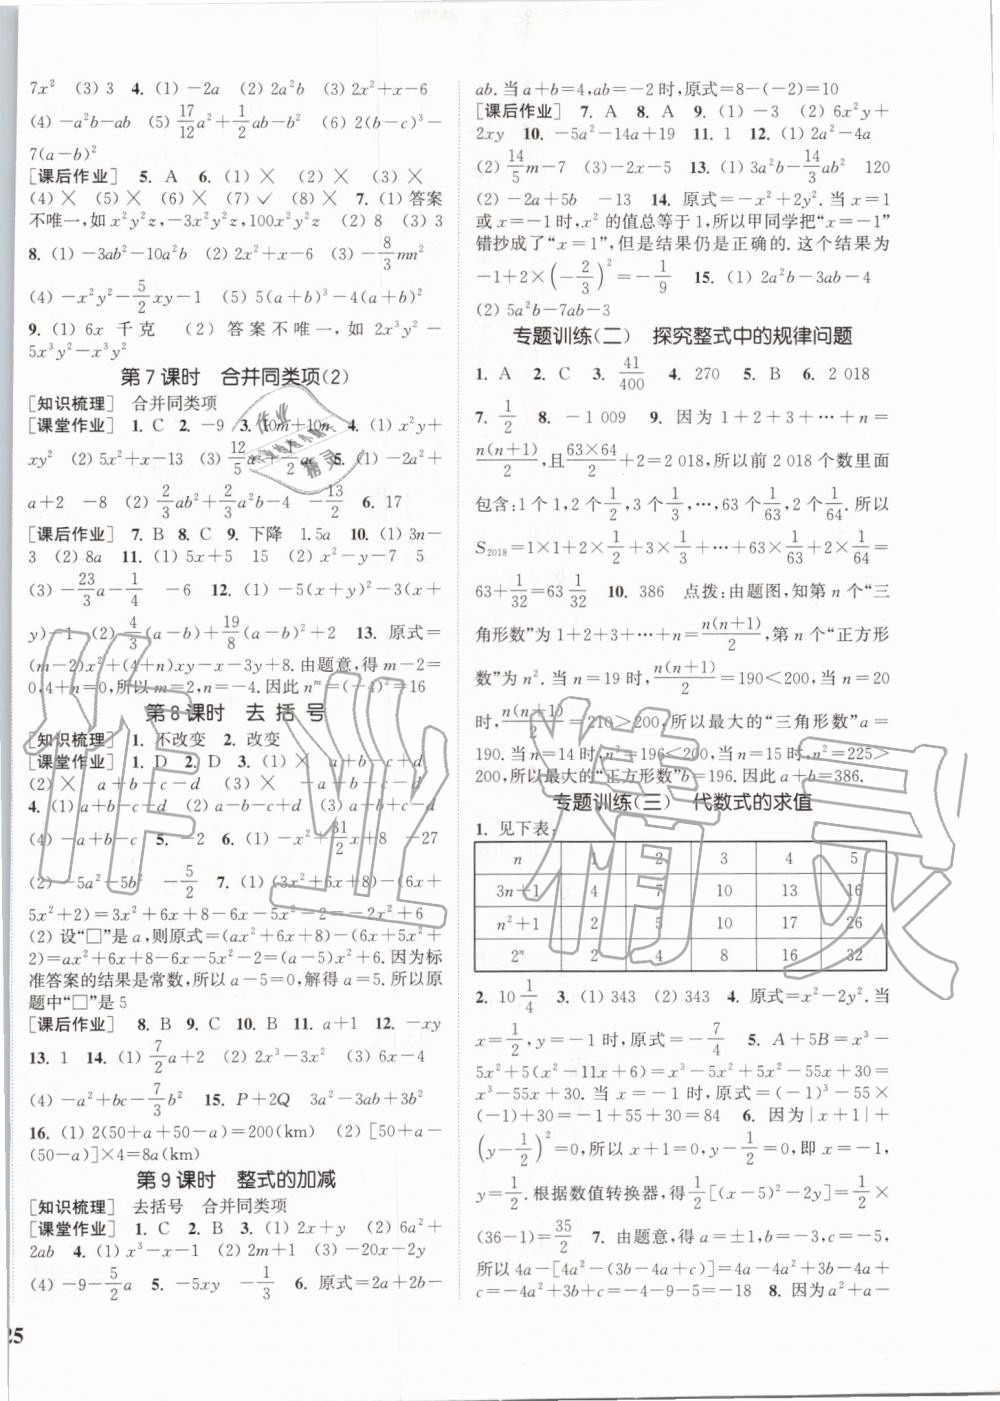 7x² (3) 3 4. (1) −2a (2) 2a²b (3) 2x²+x−6
(4) −a²b−ab (5) 17/12a²+1/2ab−b² (6) 2(b−c)³−
7(a−b)²
[课后作业] 5. A 6. (1) ╳ (2) ╳ (3) ╳
(4) ╳ (5) ╳ (6) ╳ (7) ✓ (8) ╳ 7. (1) 答案
不唯一,如 x²y²z,−3x²y²z,100x²y²z (2) 8 (3) 3
8. (1) −3ab²−10a²b (2) 2x²+x−6 (3) −8/3mn²
(4) −x²y²−5/2xy−1 (5) 5(a+b)³−4(a+b)²
9. (1) 6x 千克 (2) 答案不唯一,如 2x³y²−
5x³y²−x³y²
第 7 课时 合并同类项(2)
[知识梳理] 合并同类项
[课堂作业] 1. C 2. −9 3. 10m+10n 4. (1) x²y+
xy² (2) 5x²+x−13 (3) 5. (1) −2a²+
a+2 −8 (2) 2/3ab²+2/3a²b−4 −13/2 6. 17
[课后作业] 7. B 8. C 9. 下降 1.5a 10. (1) 3n−
3 (2) 8a 11. (1) 5x+5 15 (2) x²−y−7 5
(3) −23/3a−1/4 −6 12. (1) −5(x+y)²−3(x+
y)−1 (2) 4/3(a−b)+19/8(a−b)²+2 13. 原式=
(m−2)x²+(4+n)xy−x−3y+8. 由题意,得 m−2=
0,4+n=0,所以 m=2,n=−4. 因此 nᵐ=(−4)²=16
第 8 课时 去 括 号
[知识梳理] 1. 不改变 2. 改变
[课堂作业] 1. D 2. D 3. (1) ╳ a+b−c+d
(2) ╳ a+b−c−d (3) ╳ a−b+c−d
4. (1) a+b−c+d (2) a−b−c+d (3) a+b+c−d
(4) −a+b−c 5. −2 6. (1) −x²+31/2x+8 −27
(2) −5a²−5b² −5/2 7. (1) (3x²+6x+8)−(6x+
5x²+2)=3x²+6x+8−6x−5x²−2=−2x²+6
(2) 设“□”是 a,则原式=(ax²+6x+8)−(6x+5x²+
2)=ax²+6x+8−6x−5x²−2=(a−5)x²+6. 因为标
准答案的结果是常数,所以 a−5=0,解得 a=5. 所以原
题中“□”是 5
[课后作业] 8. B 9. C 10. B 11. a+1 12. −xy
13. 1 14. (1) 7/2a+2 (2) 2x³−3x² (3) 6x−4
(4) −a²+bc−7/3b² 15. P+2Q 3a²−3ab+3b²
16. (1) 2(50+a+50−a)=200(km) (2) [50+a−
(50−a)]×4=8a(km)
第 9 课时 整式的加减
[知识梳理] 去括号 合并同类项
[课堂作业] 1. C 2. B 3. (1) 2x+y (2) 6a²+
2ab 4. (1) x³−x−1 (2) 2m+1 (3) −20x−2y
(4) −9−5/2a 5. −5xy −1/3 6. 原式=2a+2b−
25
ab. 当 a+b=4,ab=−2 时,原式=8−(−2)=10
[课后作业] 7. A 8. A 9. (1) −3 (2) 6x²y+
2xy 10. −5a²−14a+19 11. 1 12. (1) 2a²−4a
(2) 14/5m−7 (3)−2x−5 13. (1) 3a²b−14/3ab² 120
(2) −2a+5b −13 14. 原式=−x²+2y². 当 x=1
或 x=−1 时,x² 的值总等于 1,所以甲同学把“x=−1”
错抄成了“x=1”,但是结果仍是正确的. 这个结果为
−1+2×(−2/3)²=−1/9 15. (1) 2a²b−3ab−4
(2) 5a²b−7ab−3
专题训练(二) 探究整式中的规律问题
1. A 2. C 3. 41/400 4. 270 5. B 6. 2 018
7. 1/2 8. −1 009 9. 因为 1+2+3+…+n=
n(n+1)/2,且63×64/2+2=2 018,所以前 2 018 个数里面
包含:1 个 1,2 个1/2,3 个1/3,…,63 个1/63,2 个1/64. 所以
S₂₀₁₈=1×1+2×1/2+3×1/3+…+63×1/63+2×1/64=
63+1/32=63 1/32 10. 386 点拨:由题图,知第 n 个“三
角形数”为 1+2+3+…+n=n(n+1)/2,第 n 个“正方形
数”为 n². 当 n=19 时,n(n+1)/2=190<200,当 n=20
时,n(n+1)/2=210>200,所以最大的“三角形数”a=
190. 当 n=14 时,n²=196<200,当 n=15 时,n²=225>
200,所以最大的“正方形数”b=196. 因此 a+b=386.
专题训练(三) 代数式的求值
1. 见下表:
n 1 2 3 4 5
3n+1 4 7 10 13 16
n²+1 2 5 10 17 26
2ⁿ 2 4 8 16 32
2. 10 1/4 3. (1) 343 (2) 343 4. 原式=x²−2y². 当
x=1/2,y=−1 时,原式=−7/4 5. A+5B=x³−
5x²+5(x²−11x+6)=x³−5x²+5x²−55x+30=
x³−55x+30. 当 x=−1 时,原式=(−1)³−55×
(−1)+30=−1+55+30=84 6. 因为|x+1|+
(y−1/2)²=0,所以 x+1=0,y−1/2=0,即 x=−1,
y=1/2. 根据数值转换器,得1/2[(x−5)²−2y]=1/2×
(36−1)=35/2 7. 由题意,得 a=±1,b=−3,c=−5,
所以 4a−[4a²−(3b−4a+c)]=4a−4a²+3b−4a+
c=−4a²+3b+c=−4−9−5=−18 8. 因为 a²+a−
作业精灵